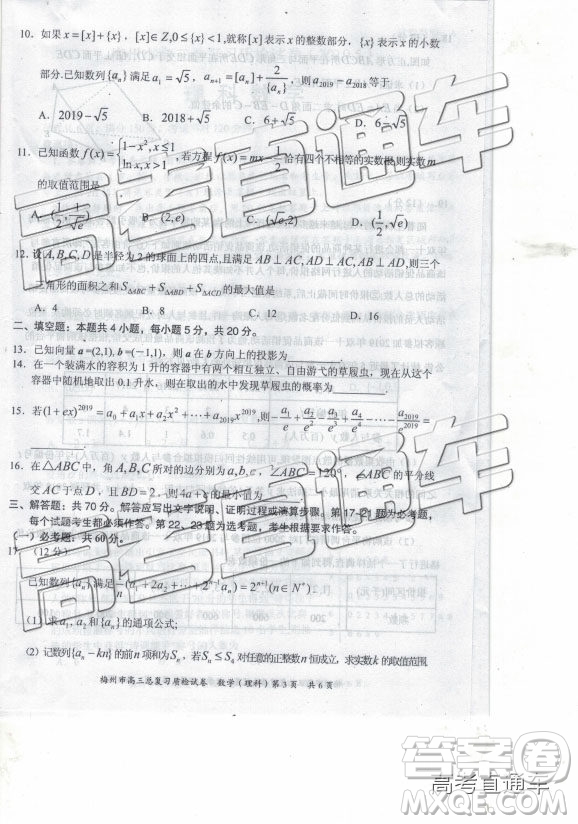 10. 如果 x=[x]+{x}，[x]∈Z,0≤{x}<1,就称[x]表示 x 的整数部分，{x}表示 x 的小数
部分.已知数列{aₙ}满足 a₁=√5，aₙ₊₁=[aₙ]+2/{aₙ}，则 a₂₀₁₉−a₂₀₁₈ 等于
A. 2019−√5 B. 2018−√5 C. 6+√5 D. 6−√5
11. 已知函数 f(x)={1−x², x≤1 ln x, x>1，若方程 f(x)=mx− 恰有四个不相等的实数根,则实数 m
的取值范围是
A. (1/2, 1/√e) B. (2,e) C. (√e,2) D. (1/2, √e)
12. 设 A,B,C,D 是半径为 2 的球面上的四点,且满足 AB⊥AC,AD⊥AC,AB⊥AD,则三个
三角形的面积之和 S△ABC+S△ABD+S△ACD 的最大值是
A. 4 B. 8 C. 12 D. 16
二、填空题：本题共 4 小题，每小题 5 分，共 20 分。
13. 已知向量 a=(2,1), b=(−1,1)，则 a 在 b 方向上的投影为
14. 在一个装满水的容积为 1 升的容器中有两个相互独立、自由游弋的草履虫，现在从这个
容器中随机地取出 0.1 升水，则在取出的水中发现草履虫的概率为
15. 若(1+ex)²⁰¹⁹=a₀+a₁x+a₂x²+⋯+a₂₀₁₉x²⁰¹⁹,则−a₁/e+a₂/e²−a₃/e³+⋯−a₂₀₁₉/e²⁰¹⁹=
16. 在△ABC中，角 A,B,C 所对的边分别为 a,b,c，∠ABC=120°，∠ABC 的平分线
交 AC 于点 D，且 BD=2，则 的最小值为
三、解答题：共 70 分。解答应写出文字说明、证明过程或演算步骤。第 17~21 题为必考题，
每个试题考生都必须作答。第 22、23 题为选考题，考生根据要求作答。
（一）必考题：共 60 分。
17. （12 分）
已知数列{aₙ}满足 1/n(a₁+2a₂+⋯+2ⁿ⁻¹aₙ)=2ⁿ⁺¹(n∈N*)
（1）求 a₁,a₂ 和{aₙ}的通项公式；
（2）记数列{aₙ−kn}的前 n 项和为 Sₙ，若 Sₙ≤S₄ 对任意的正整数 n 恒成立，求实数 k 的取值范围
梅州市高三总复习质检试卷 数学（理科）第 3 页 共 6 页
高考直通车
高考直通车
答案圈
高考直通车
MXQE.COM